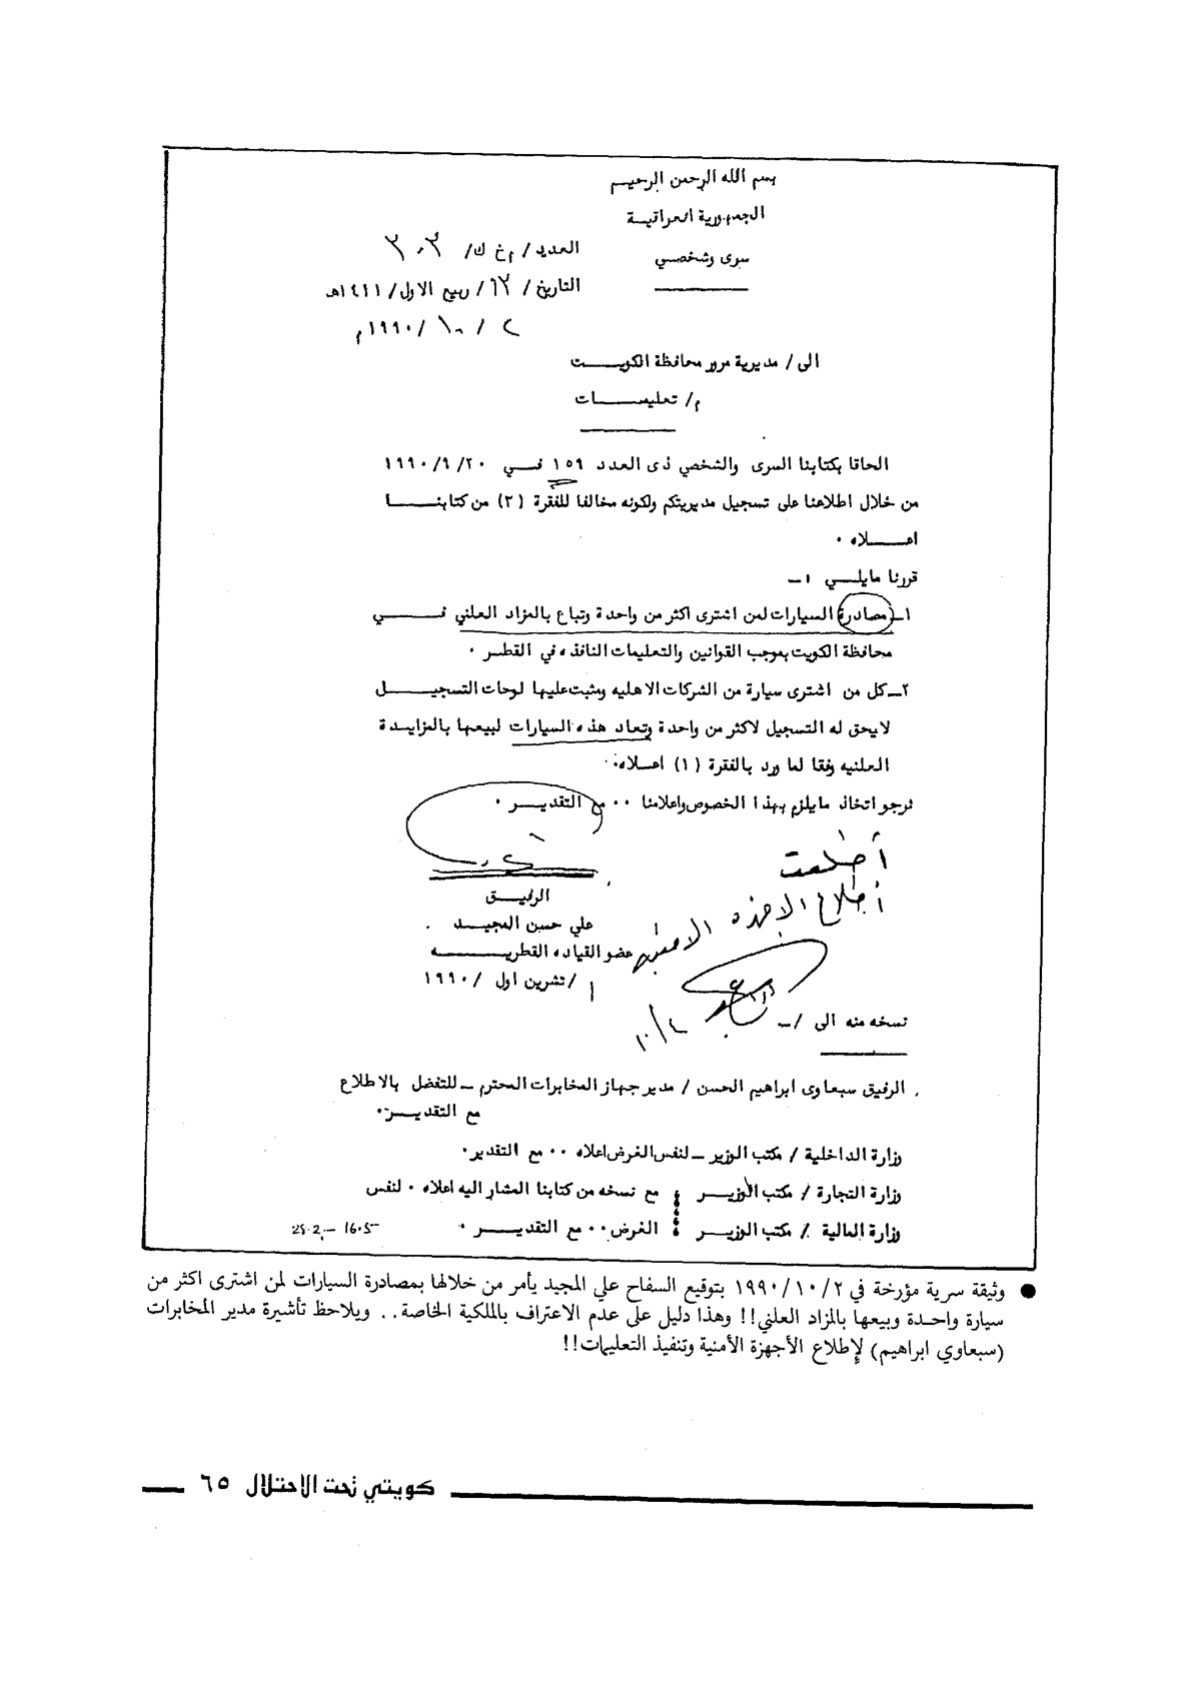 بسم الله الرحمن الرحيم
الجمهورية العراقيـة
سرى وشخصـي
العدد / م خ ك/ ٣٠٢
التاريخ / ١٣/ ربيع الاول/ ١٤١١هـ
٢ / ١٠ /١٩٩٠م
الى / مديرية مرور محافظة الكويـــــت
م/ تعليمــــــات
الحاقا بكتابنا السرى والشخصي ذى العدد ١٥٩ فـــي ١٩٩٠/٩/٢٠
من خلال اطلاعنا على تسجيل مديريتكم ولكونه مخالفا للفقرة (٢) من كتابنـــــا
اعـــــلاه ٠
قررنا مايلـــي :ـ
١ـ مصادرة السيارات لمن اشترى اكثر من واحدة وتباع بالمزاد العلني فـــــــي
محافظة الكويت بموجب القوانين والتعليمات النافذه في القطر ٠
٢ـ كل من اشترى سيارة من الشركات الاهليه ومثبت عليها لوحات التسجيـــــــل
لايحق له التسجيل لاكثر من واحدة وتعاد هذه السيارات لبيعها بالمزايـــدة
العلنيه وفقا لما ورد بالفقرة (١) اعـــلاه٠
نرجو اتخاذ مايلزم بهذا الخصوص واعلامنا ٠٠ مع التقديــــر ٠
أطلعت
أطلاع الاجهزه الامنيه
١٠/٤
الرفيـــق
علي حسن المجيـــد
عضو القياده القطريـــــــه
/ تشرين اول /١٩٩٠
نسخه منه الى /ـ
الرفيق سبعاوى ابراهيم الحسن / مدير جهاز المخابرات المحترم ـ للتفضل بالاطلاع
مع التقديـــر٠
وزارة الداخلية / مكتب الوزير ـ لنفس الغرض اعلاه ٠٠ مع التقدير٠
وزارة التجارة / مكتب الوزيـــر : مع نسخه من كتابنا المشار اليه اعلاه ٠ لنفس
وزارة المالية / مكتب الوزيـــر : الغرض ٠٠ مع التقديـــــر ٠
● وثيقة سرية مؤرخة في ١٩٩٠/١٠/٢ بتوقيع السفاح علي المجيد يأمر من خلالها بمصادرة السيارات لمن اشترى اكثر من
سيارة واحـدة وبيعها بالمزاد العلني!! وهذا دليل على عدم الاعتراف بالملكية الخاصة.. ويلاحظ تأشيرة مدير المخابرات
(سبعاوي ابراهيم) لإطلاع الأجهزة الأمنية وتنفيذ التعليمات!!
كويتي تحت الاحتلال ٦٥